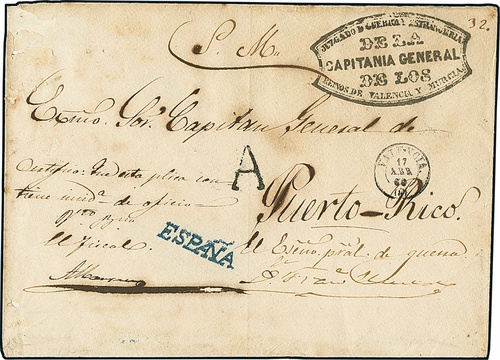 S. M.
32.
JUZGADO D GUERRA Y ESTRANGERIA
DE LA
CAPITANIA GENERAL
DE LOS
REINOS DE VALENCIA Y MURCIA
Exmo. Sor. Capitan General de
A
VALENCIA
17
ABR
66
Puerto-Rico.
Certifico: Que esta plica con
tiene
de oficio
El fiscal.
ESPAÑA
El Escno. pral. de guerra.